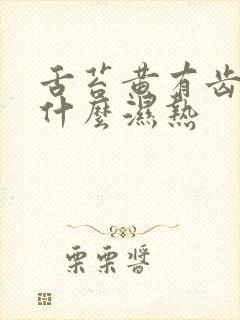 舌苔黄有齿
什麼濕熱
栗栗醬